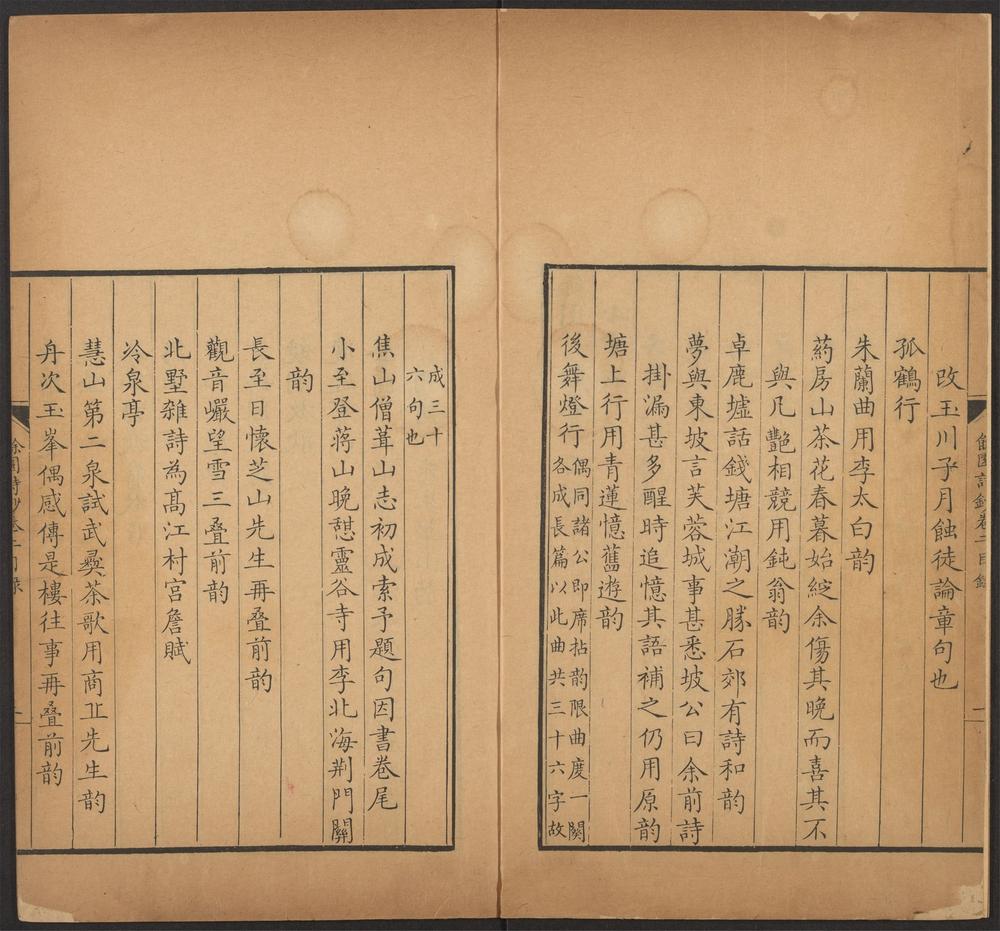 改玉川子月蝕徒論章句也
孤鶴行
朱蘭曲用李太白韵
葯房山茶花春暮始綻余傷其晚而喜其不
與凡艷相競用鈍翁韵
卓鹿墟話錢塘江潮之勝石郊有詩和韵
夢與東坡言芙蓉城事甚悉坡公曰余前詩
掛漏甚多醒時追憶其語補之仍用原韵
塘上行用青蓮憶舊遊韵
後舞燈行
偶同諸公即席拈韵限曲度一闋
各成長篇以此曲共三十六字故
成三十
六句也
焦山僧葺山志初成索予題句因書卷尾
小至登蔣山晚憇靈谷寺用李北海荆門關
韵
長至日懷芝山先生再叠前韵
觀音巗望雪三叠前韵
北墅雑詩為髙江村宫詹賦
冷泉亭
慧山第二泉試武彛茶歌用商丘先生韵
舟次玉峯偶感傳是樓往事再叠前韵